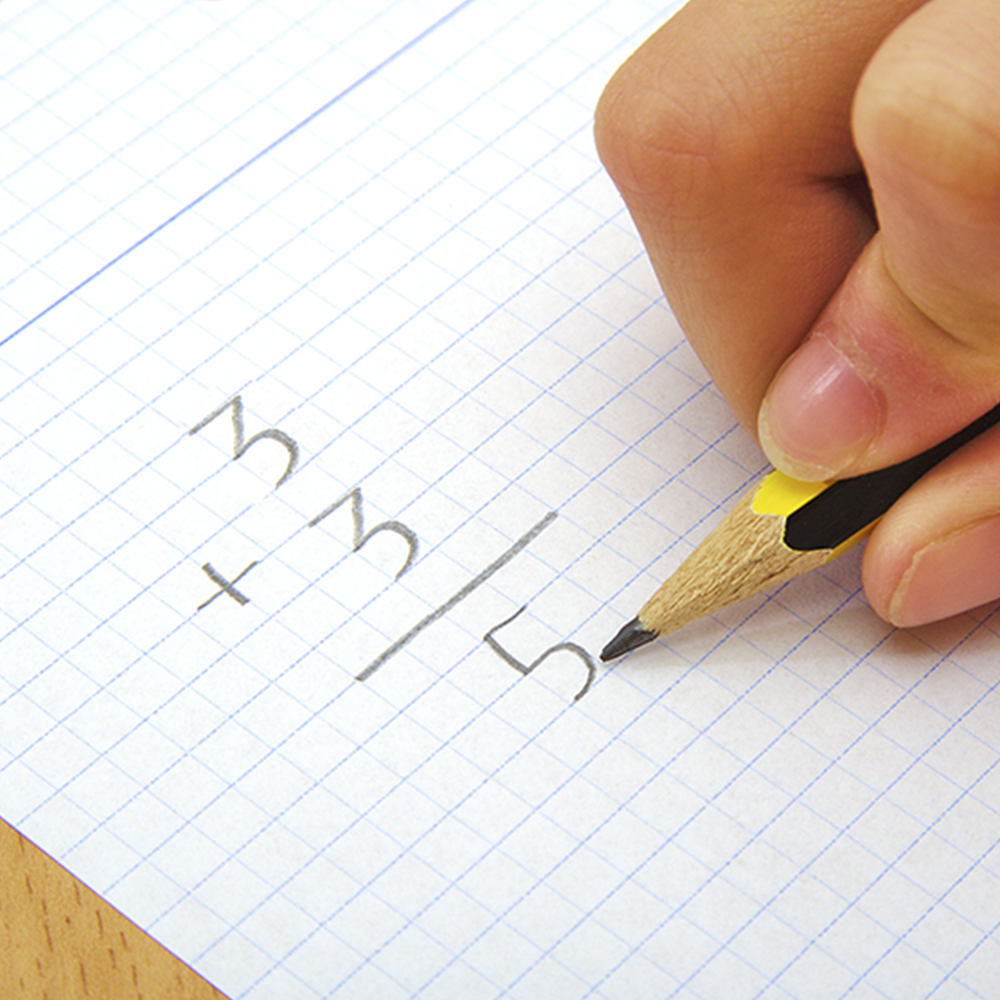 3
+ 3
5